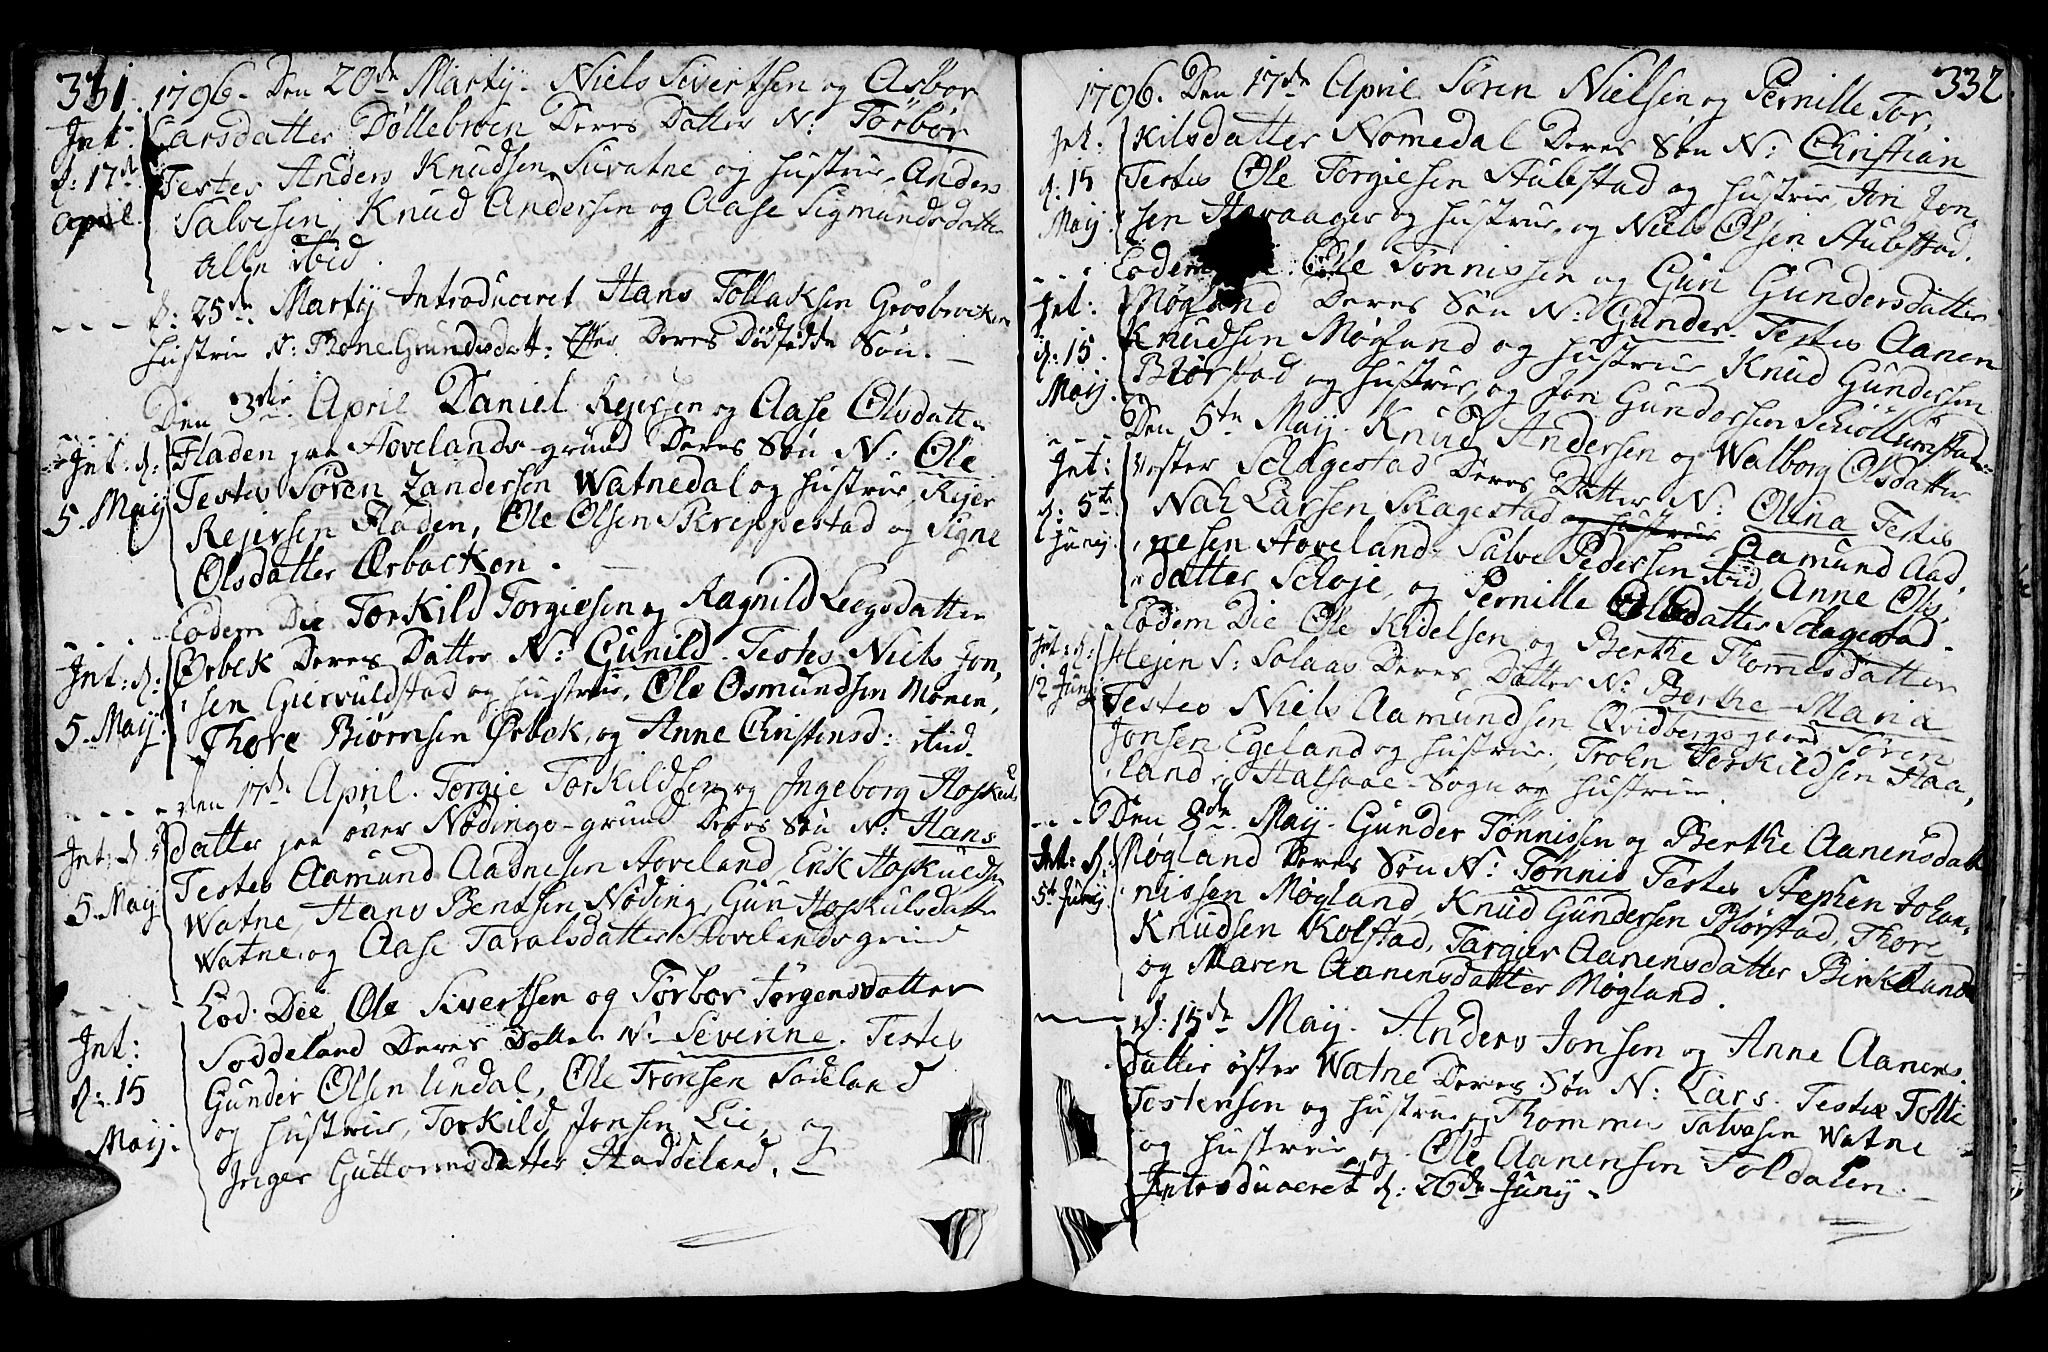 331. 1796. Den 20de Martij. Niels Sivertsen og Asbor
Int: Larsdatter Døllebroen Deres Datter N: Törbör
d: 17de Testes Anders Knudsen Suvatne og hustrue, Anders
April. Salvesen, Knud Andersen og Aase Sigmundsdatter
Alle ibid.
d: 25de Martij Introduceret Hans Tollaksen
hustrue N: Thone Gundersdatt: Efter Deres Dödfödde Sön.
Den 3die April Daniel Rejersen og Aase Olsdatter
Int: d: Fladen paa Hovelands-grund Deres Sön N: Ole
5. Maij Testes Sören Zandersen Watnedal og hustrue, Rejer
Rejersen Fladen, Ole Olsen Skreppestad og Signe
Olsdatter Ørbacken.
Eodem Die Torkild Torgiesen og Ragnild Leegsdatter
Int: d: Ørbek Deres Datter N: Gunild. Testes Niels Jon,
5. Maij sen Giervuldstad og hustrue, Ole Osmundsen Monen,
Thore Biörnsen Ørbek, og Anne Christensd: ibid.
Den 17de April. Torgie Torkildsen og Ingeborg Hoskuls
Int: d datter paa över Nödings-grund Deres Sön N: Hans
5. Maij Testes Aamund Aadnesen Hoveland, Erik Hoskuldsen
Watne, Hans Bentsen Nöding, Gun Hoskulsdatter
Watne, og Aase Taralsdatter Hovelands grund
Eod: Die Ole Sivertsen og Törbor Jörgensdatter
Int: Soddeland Deres Datter N: Severine. Testes
d: 15 Gunder Olsen Undal, Ole Tronsen Sodeland
Maij. og hustrue, Torkild Jonsen Lie, og
Inger Guttormsdatter Haddeland.
1796. Den 17de April Sören Nielsen og Pernille Tor, 332
Int: kilsdatter Nomedal Deres Sön N: Christian
d: 15 Testes Ole Torgiesen Stubstad og hustrue, Jon Jon,
Maij. sen Haraager og hustrue, og Niels Olsen Stubstad.
Eodem Ole Tönnissen og Guri Gundersdatter
Int: Møgland Deres Sön N: Gunder. Testes Aanen
d: 15. Knudsen Møgland og hustrue Knud Gundersen
Maij. Biörstad og hustrue, og Jon Gundersen
Den 5te Maij. Knud Andersen og Walborg Olsdatter
Int: Vester Schagestad Deres Datter N: Olena Testes
d: 5te Larsen Skagestad og hustrue Aamund Aad,
Junij. nesen Hoveland, Salve Pedersen ibid, Anne Ols,
datter Schoje, og Pernille Olsdatter Schagestad.
Int: d: Eodem Die Ole Kidelsen og Berthe Thommesdatter
12 Junij Hejen S: Solaas Deres Datter N: Berthe Maria
Testes Niels Aamundsen Qvidbergsgaard, Sören
Jonsen Egeland og hustrue, Troen Torkildsen Haa,
land i Halsaae-Sogn og hustrue.
Den 8de Maij. Gunder Tönnissen og Berthe Aanensdatter
Int: d: Møgland Deres Sön N: Tönnis Testes Stephen Johan,
5te Junij nissen Møgland, Knud Gundersen Biörstad, Thore
Knudsen Kolstad, Targier Aanensdatter Birkeland
og Maren Aanensdatter Møgland.
d: 15de Maij. Anders Jonsen og Anne Aanens.
datter öster Watne Deres Sön N: Lars. Testes Tolli
Testensen og hustrue, Thommes Salvesen Watne
og hustrue, og Ole Aanensen Foldalen.
Introduceret d: 26de Junij.